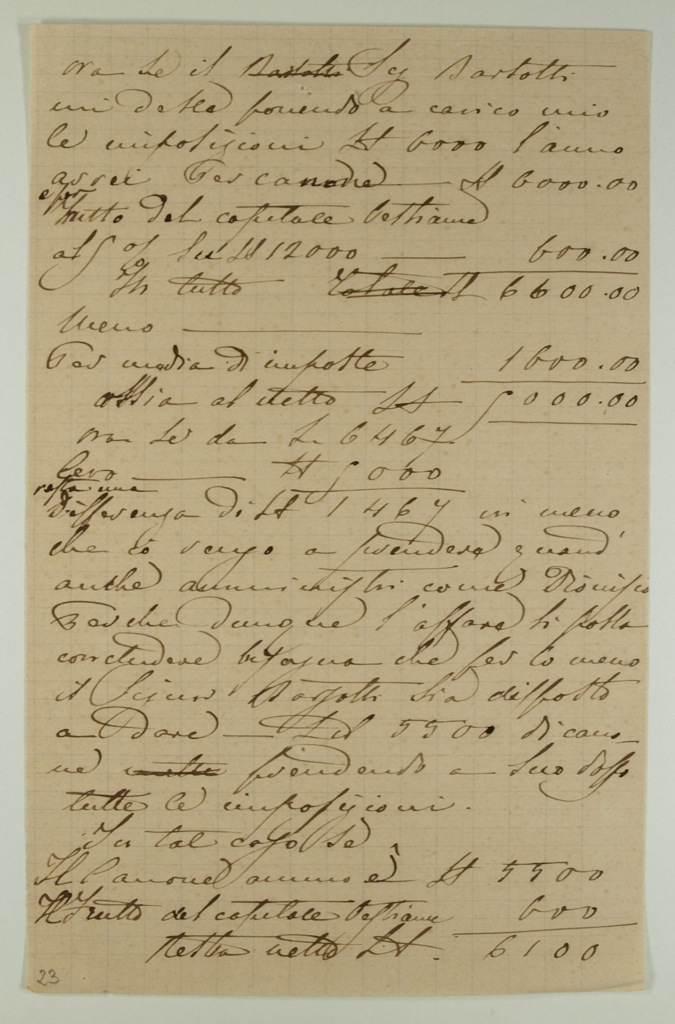 ora se il Bartotti Sig Bartotti
mi desse ponendo a carico mio
le imposizioni H 6000 l'anno
avrei Per canone — H 6000.00
e per
frutto del capitale bestiame
al 5 % su H 12000 — 600.00
In tutto Totale H 6600.00
Meno —
Per media di imposte 1600.00
ossia al netto H 5000.00
ora se da L 6467
levo — H 5000
resta una
Differenza di H 1467 in meno
che io vengo a prendere quand'
anche amministri come Dionisio
Perche dunque l'affare si possa
concludere bisogna che per lo meno
il Signor Bartotti sia disposto
a Dare — 5500 di cano-
ne prendendo a suo dosso
tutte le imposizioni.
In tal caso se
Il Canone annuo è H 5500
Il Frutto del capitale bestiame 600
resta netto H. 6100
23